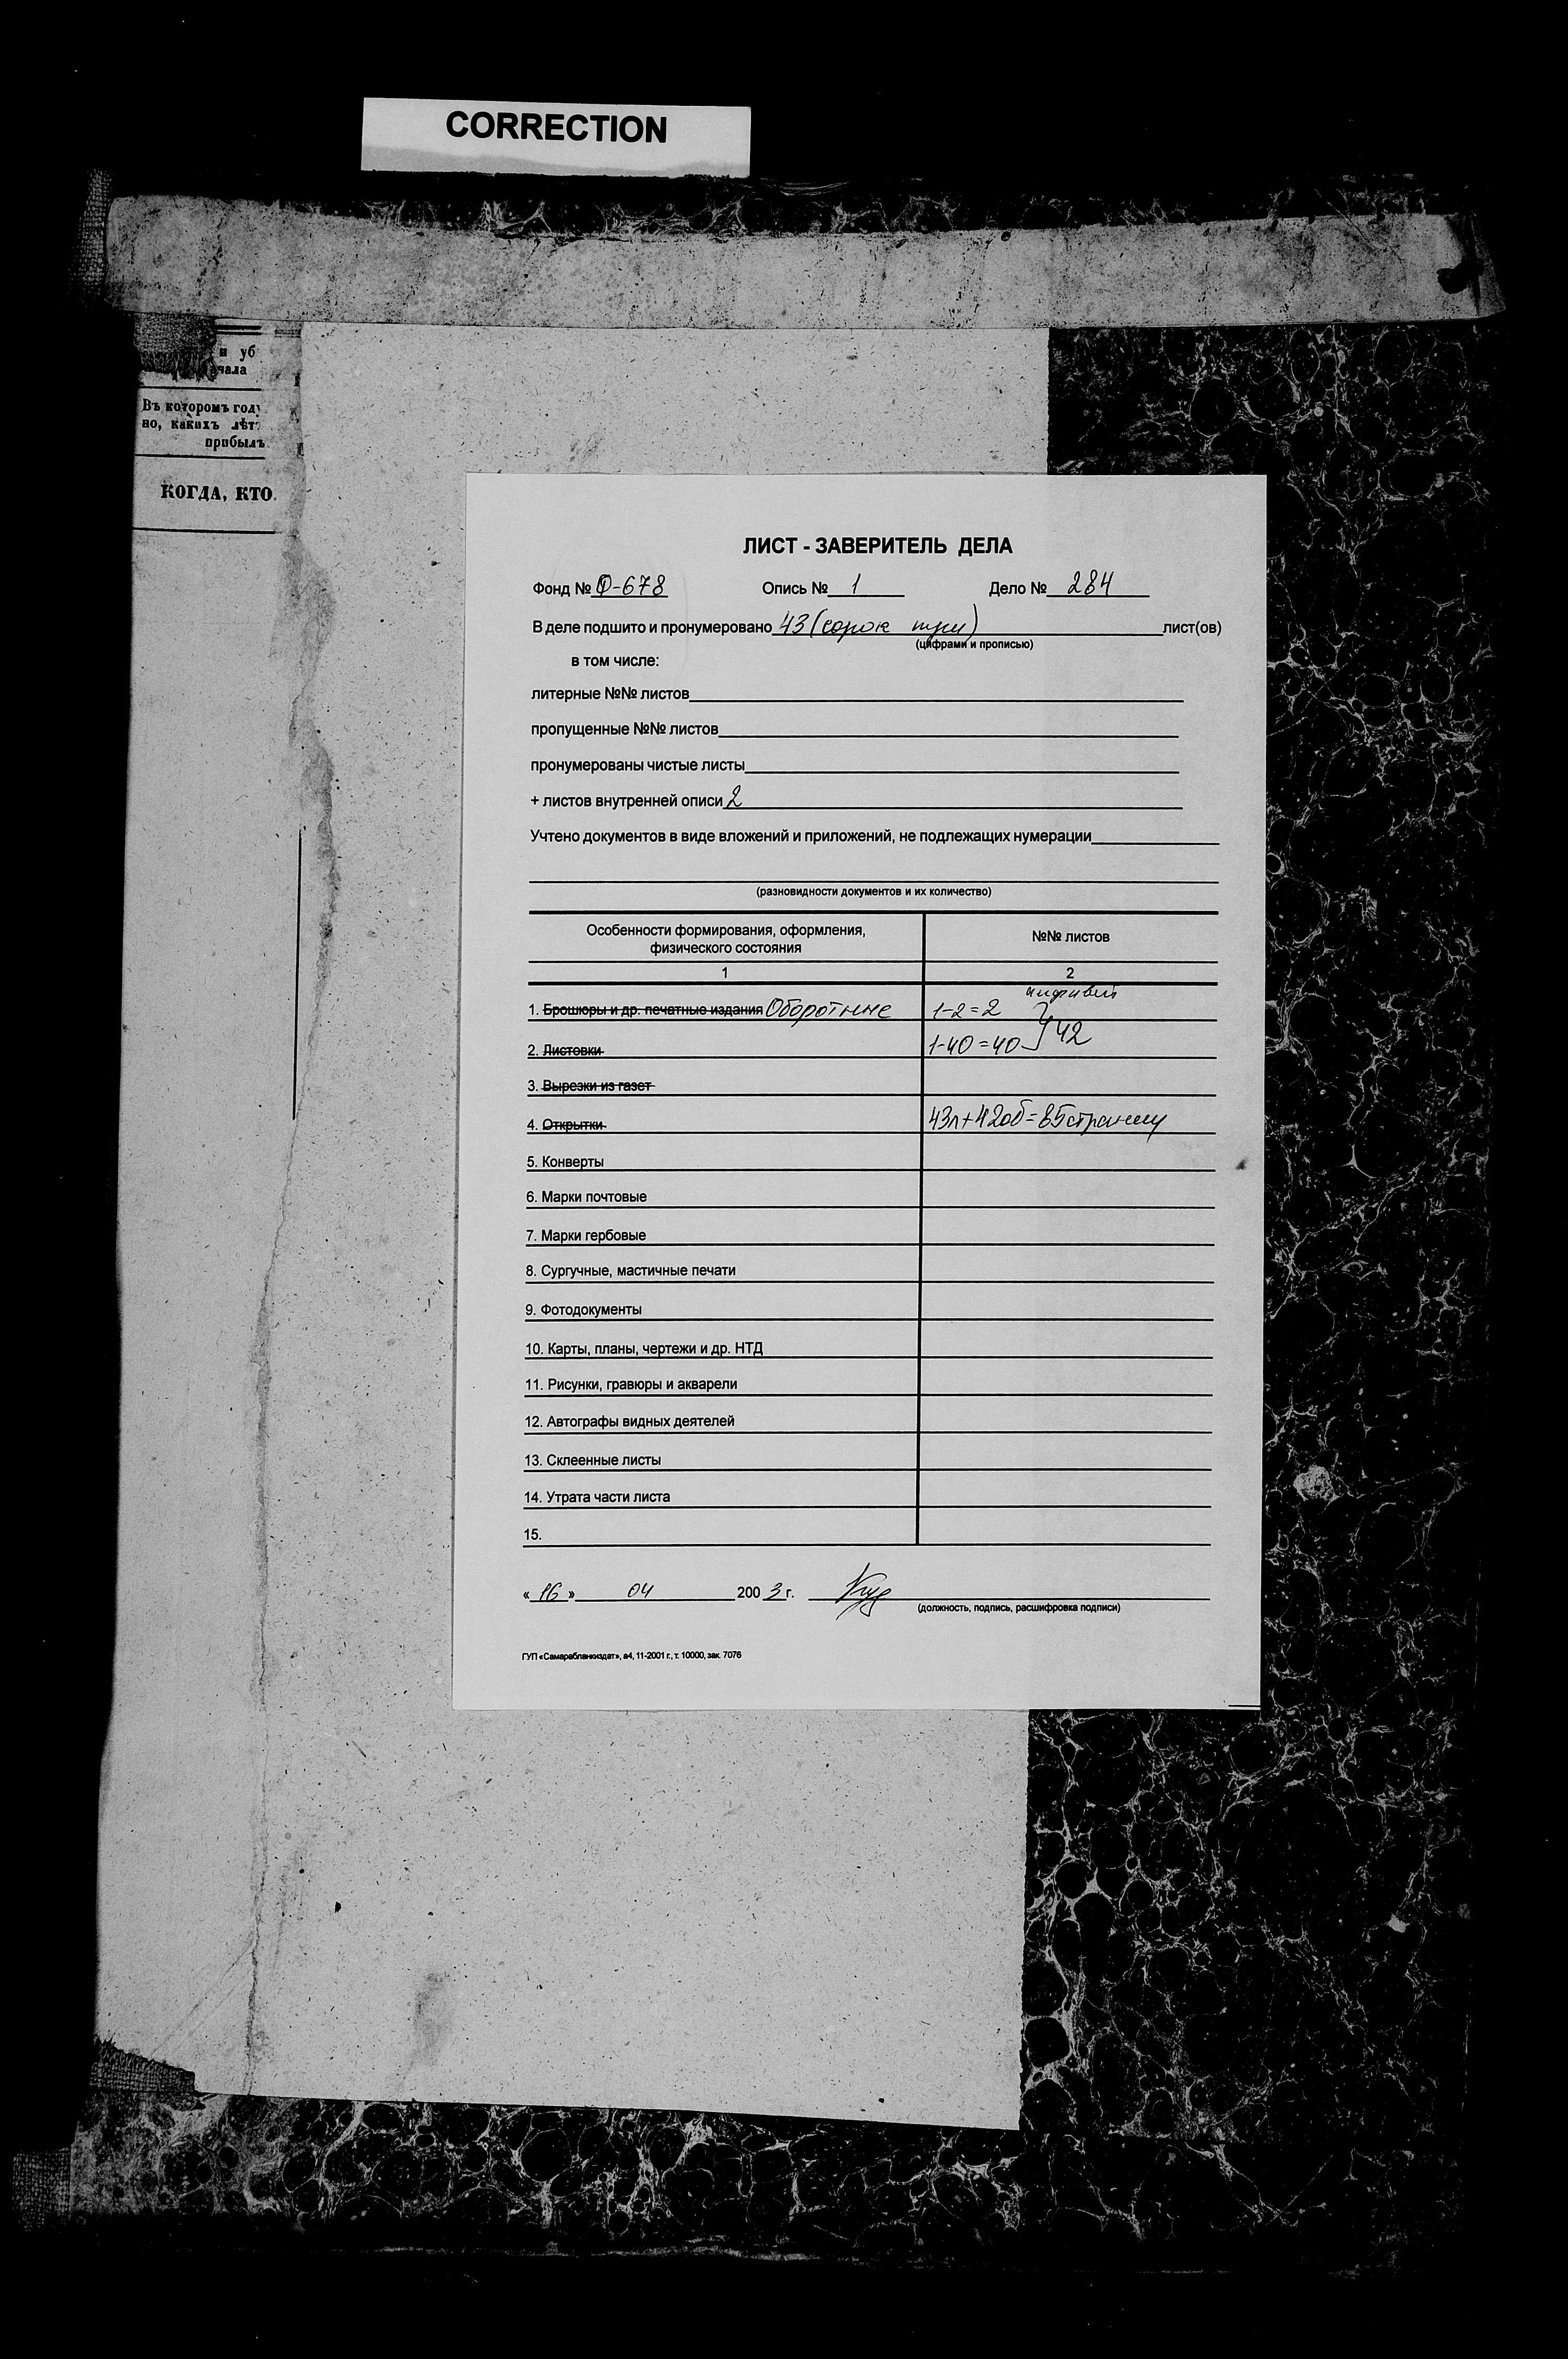 CORRECTION
и уб
чала
Въ которомъ году
но, какихъ лѣтъ
прибылъ
КОГДА, КТО
ЛИСТ - ЗАВЕРИТЕЛЬ ДЕЛА
Фонд № Ф-678 Опись № 1 Дело № 284
В деле подшито и пронумеровано 43 (сорок три) лист(ов)
(цифрами и прописью)
в том числе:
литерные №№ листов
пропущенные №№ листов
пронумерованы чистые листы
+ листов внутренней описи 2
Учтено документов в виде вложений и приложений, не подлежащих нумерации
(разновидности документов и их количество)
Особенности формирования, оформления, физического состояния №№ листов
1 2
1. Брошюры и др. печатные издания Оборотные 1-2=2
2. Листовки 1-40=40 } 42
3. Вырезки из газет
4. Открытки 43л+42об=85страниц
5. Конверты
6. Марки почтовые
7. Марки гербовые
8. Сургучные, мастичные печати
9. Фотодокументы
10. Карты, планы, чертежи и др. НТД
11. Рисунки, гравюры и акварели
12. Автографы видных деятелей
13. Склеенные листы
14. Утрата части листа
15.
« 16 » 04 2003 г.
(должность, подпись, расшифровка подписи)
ГУП «Самарабланкиздат», а4, 11-2001 г., т. 10000, зак. 7076